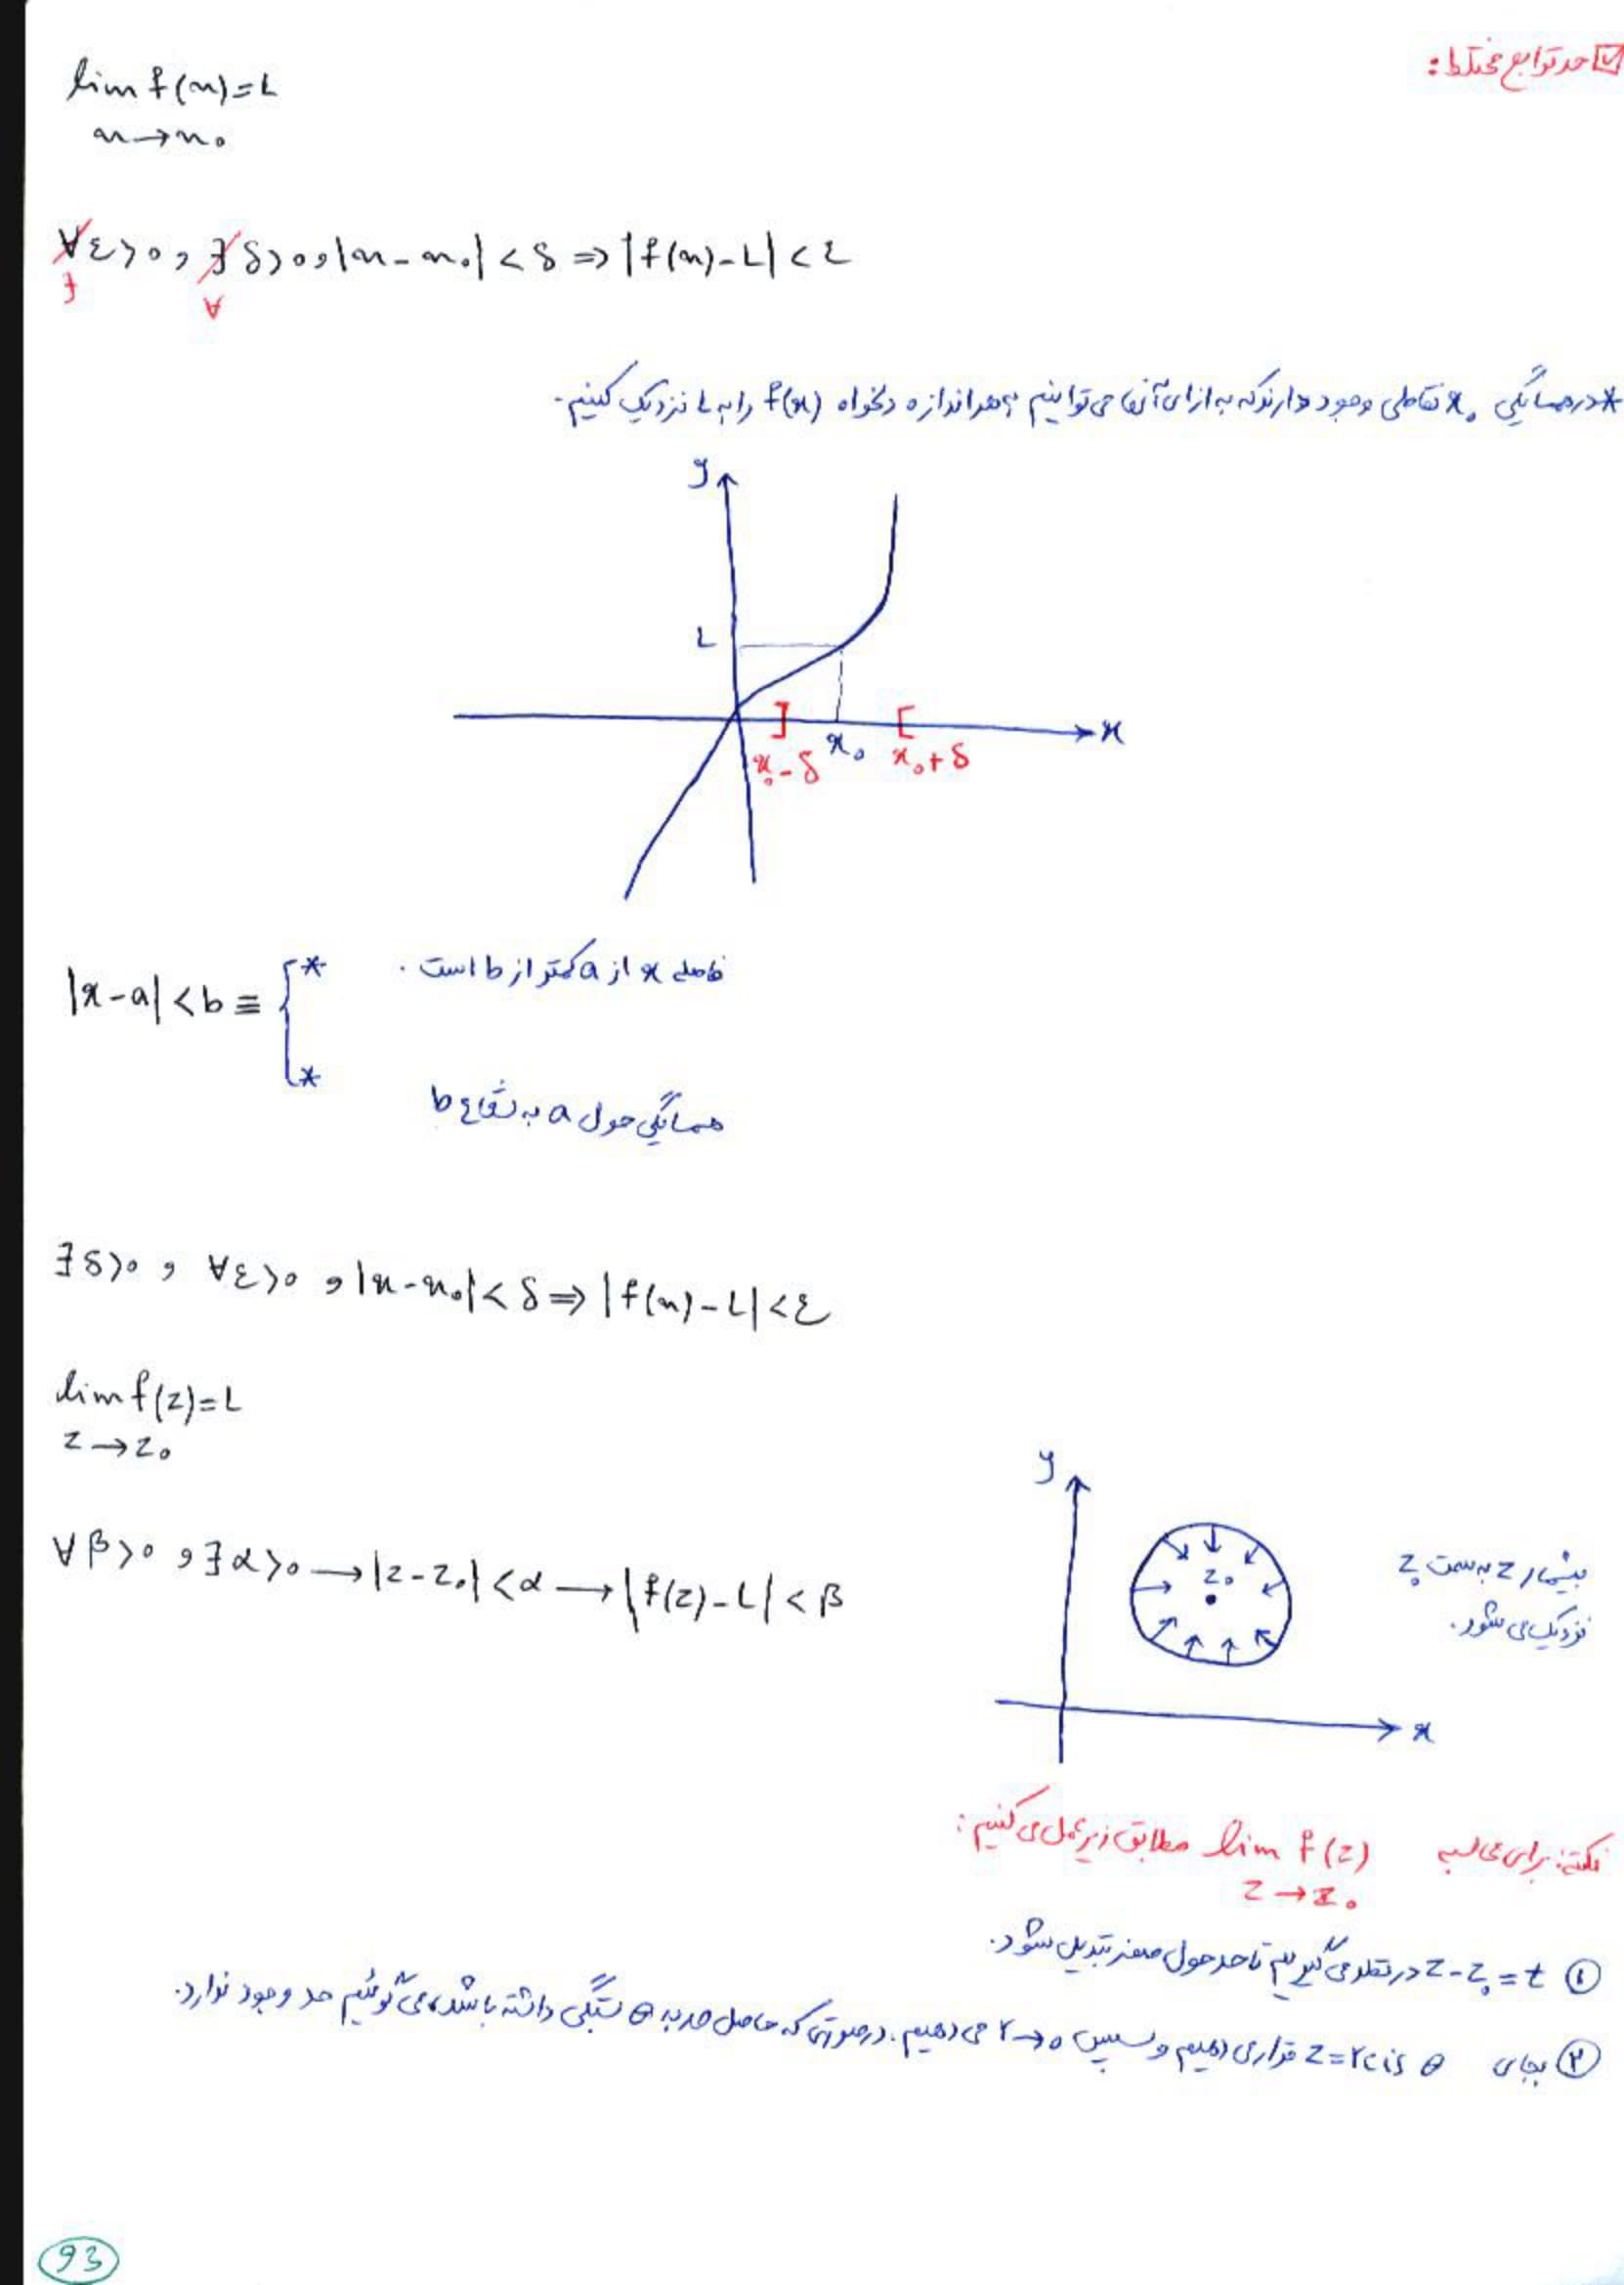 حد توابع مختلط:
lim f(x)=L
x→x₀
∀ε>0 , ∃δ>0 , |x-x₀|<δ ⇒ |f(x)-L|<ε
∃ ∀
* در همسایگی x₀ نقاطی وجود دارند که به ازای آنها می توانیم به هر اندازه دلخواه f(x) را به L نزدیک کنیم.
y
L
x₀-δ x₀ x₀+δ x
|x-a|<b ≡ { * فاصله x از a کمتر از b است.
* همسایگی حول a به شعاع b
∃δ>0 , ∀ε>0 , |x-x₀|<δ ⇒ |f(x)-L|<ε
lim f(z)=L
z→z₀
∀β>0 , ∃α>0 → |z-z₀|<α → |f(z)-L|<β
y
z₀
x
بیشمار z به سمت z₀
نزدیک می شود.
نکته: برای محاسبه lim f(z) مطابق زیر عمل می کنیم:
z→z₀
① z-z₀=t در نظر می گیریم تا حد حول صفر تبدیل شود.
② بجای z=rcis θ قرار می دهیم و سپس r→0 می دهیم. در صورتی که حاصل حد به θ بستگی داشته باشد، می گوئیم حد وجود ندارد.
93